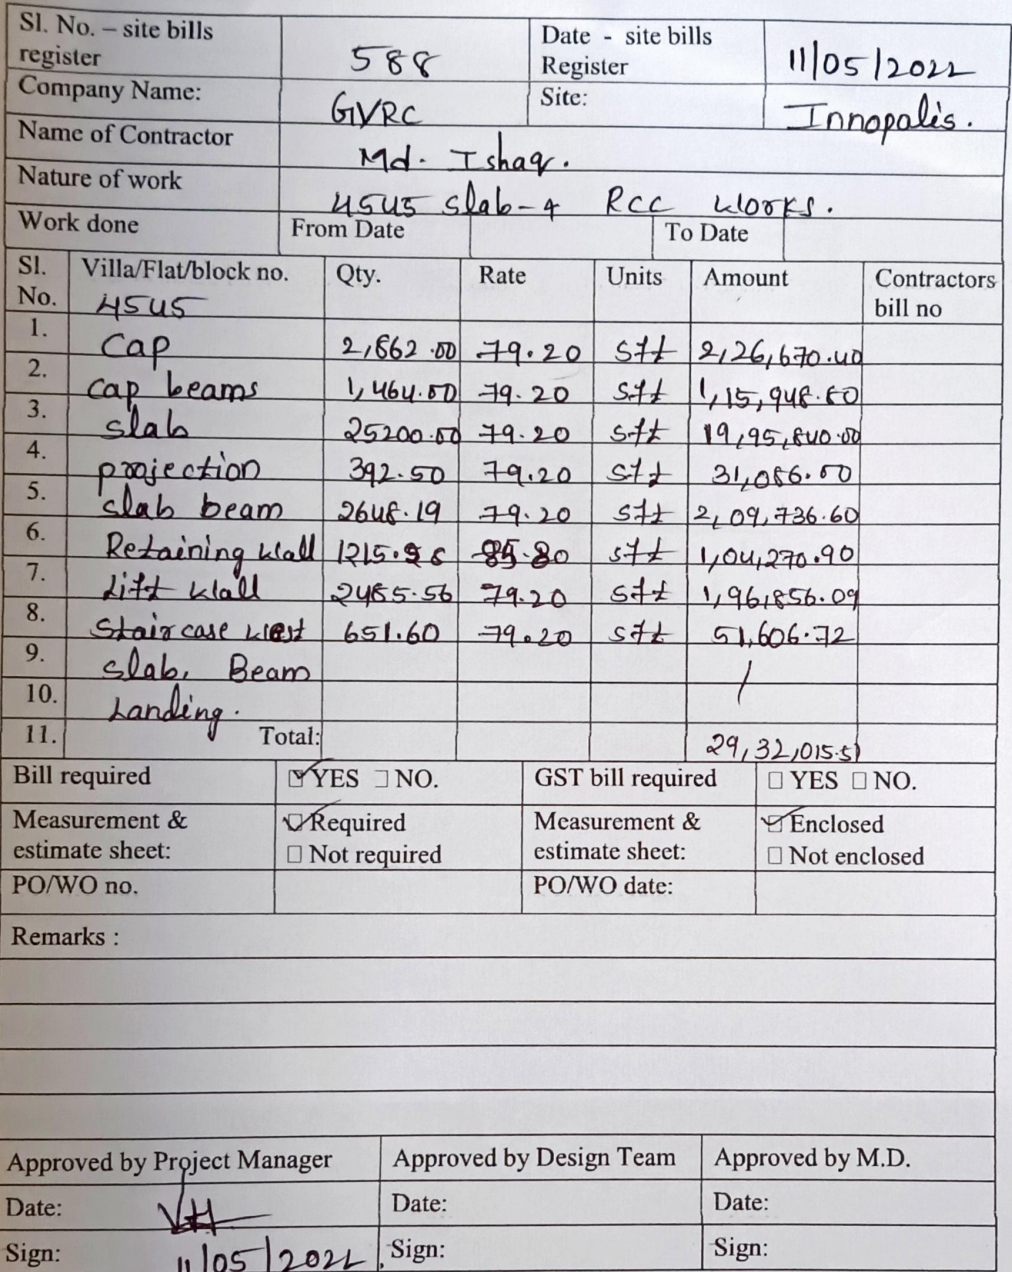 Sl. No. – site bills register 588 Date - site bills Register 11/05/2022
Company Name: GVRC Site: Innopalis.
Name of Contractor Md. Ishaq.
Nature of work 4545 slab-4 RCC works.
Work done From Date To Date
Sl. No. Villa/Flat/block no. 4545 Qty. Rate Units Amount Contractors bill no
1. Cap 2,862.00 79.20 sft 2,26,670.40
2. cap beams 1,464.00 79.20 sft 1,15,948.80
3. slab 25200.00 79.20 sft 19,95,840.00
4. projection 392.50 79.20 sft 31,086.00
5. slab beam 2648.19 79.20 sft 2,09,736.60
6. Retaining wall 1215.28 85.80 sft 1,04,270.90
7. Lift wall 2485.56 79.20 sft 1,96,856.09
8. Staircase 651.60 79.20 sft 51,606.72
9. slab, Beam
10. Landing.
11. Total: 29,32,015.51
Bill required ☑ YES □ NO. GST bill required □ YES □ NO.
Measurement & estimate sheet: ☑ Required □ Not required Measurement & estimate sheet: ☑ Enclosed □ Not enclosed
PO/WO no. PO/WO date:
Remarks :
Approved by Project Manager Approved by Design Team Approved by M.D.
Date: Date: Date:
Sign: 11/05/2022. Sign: Sign: